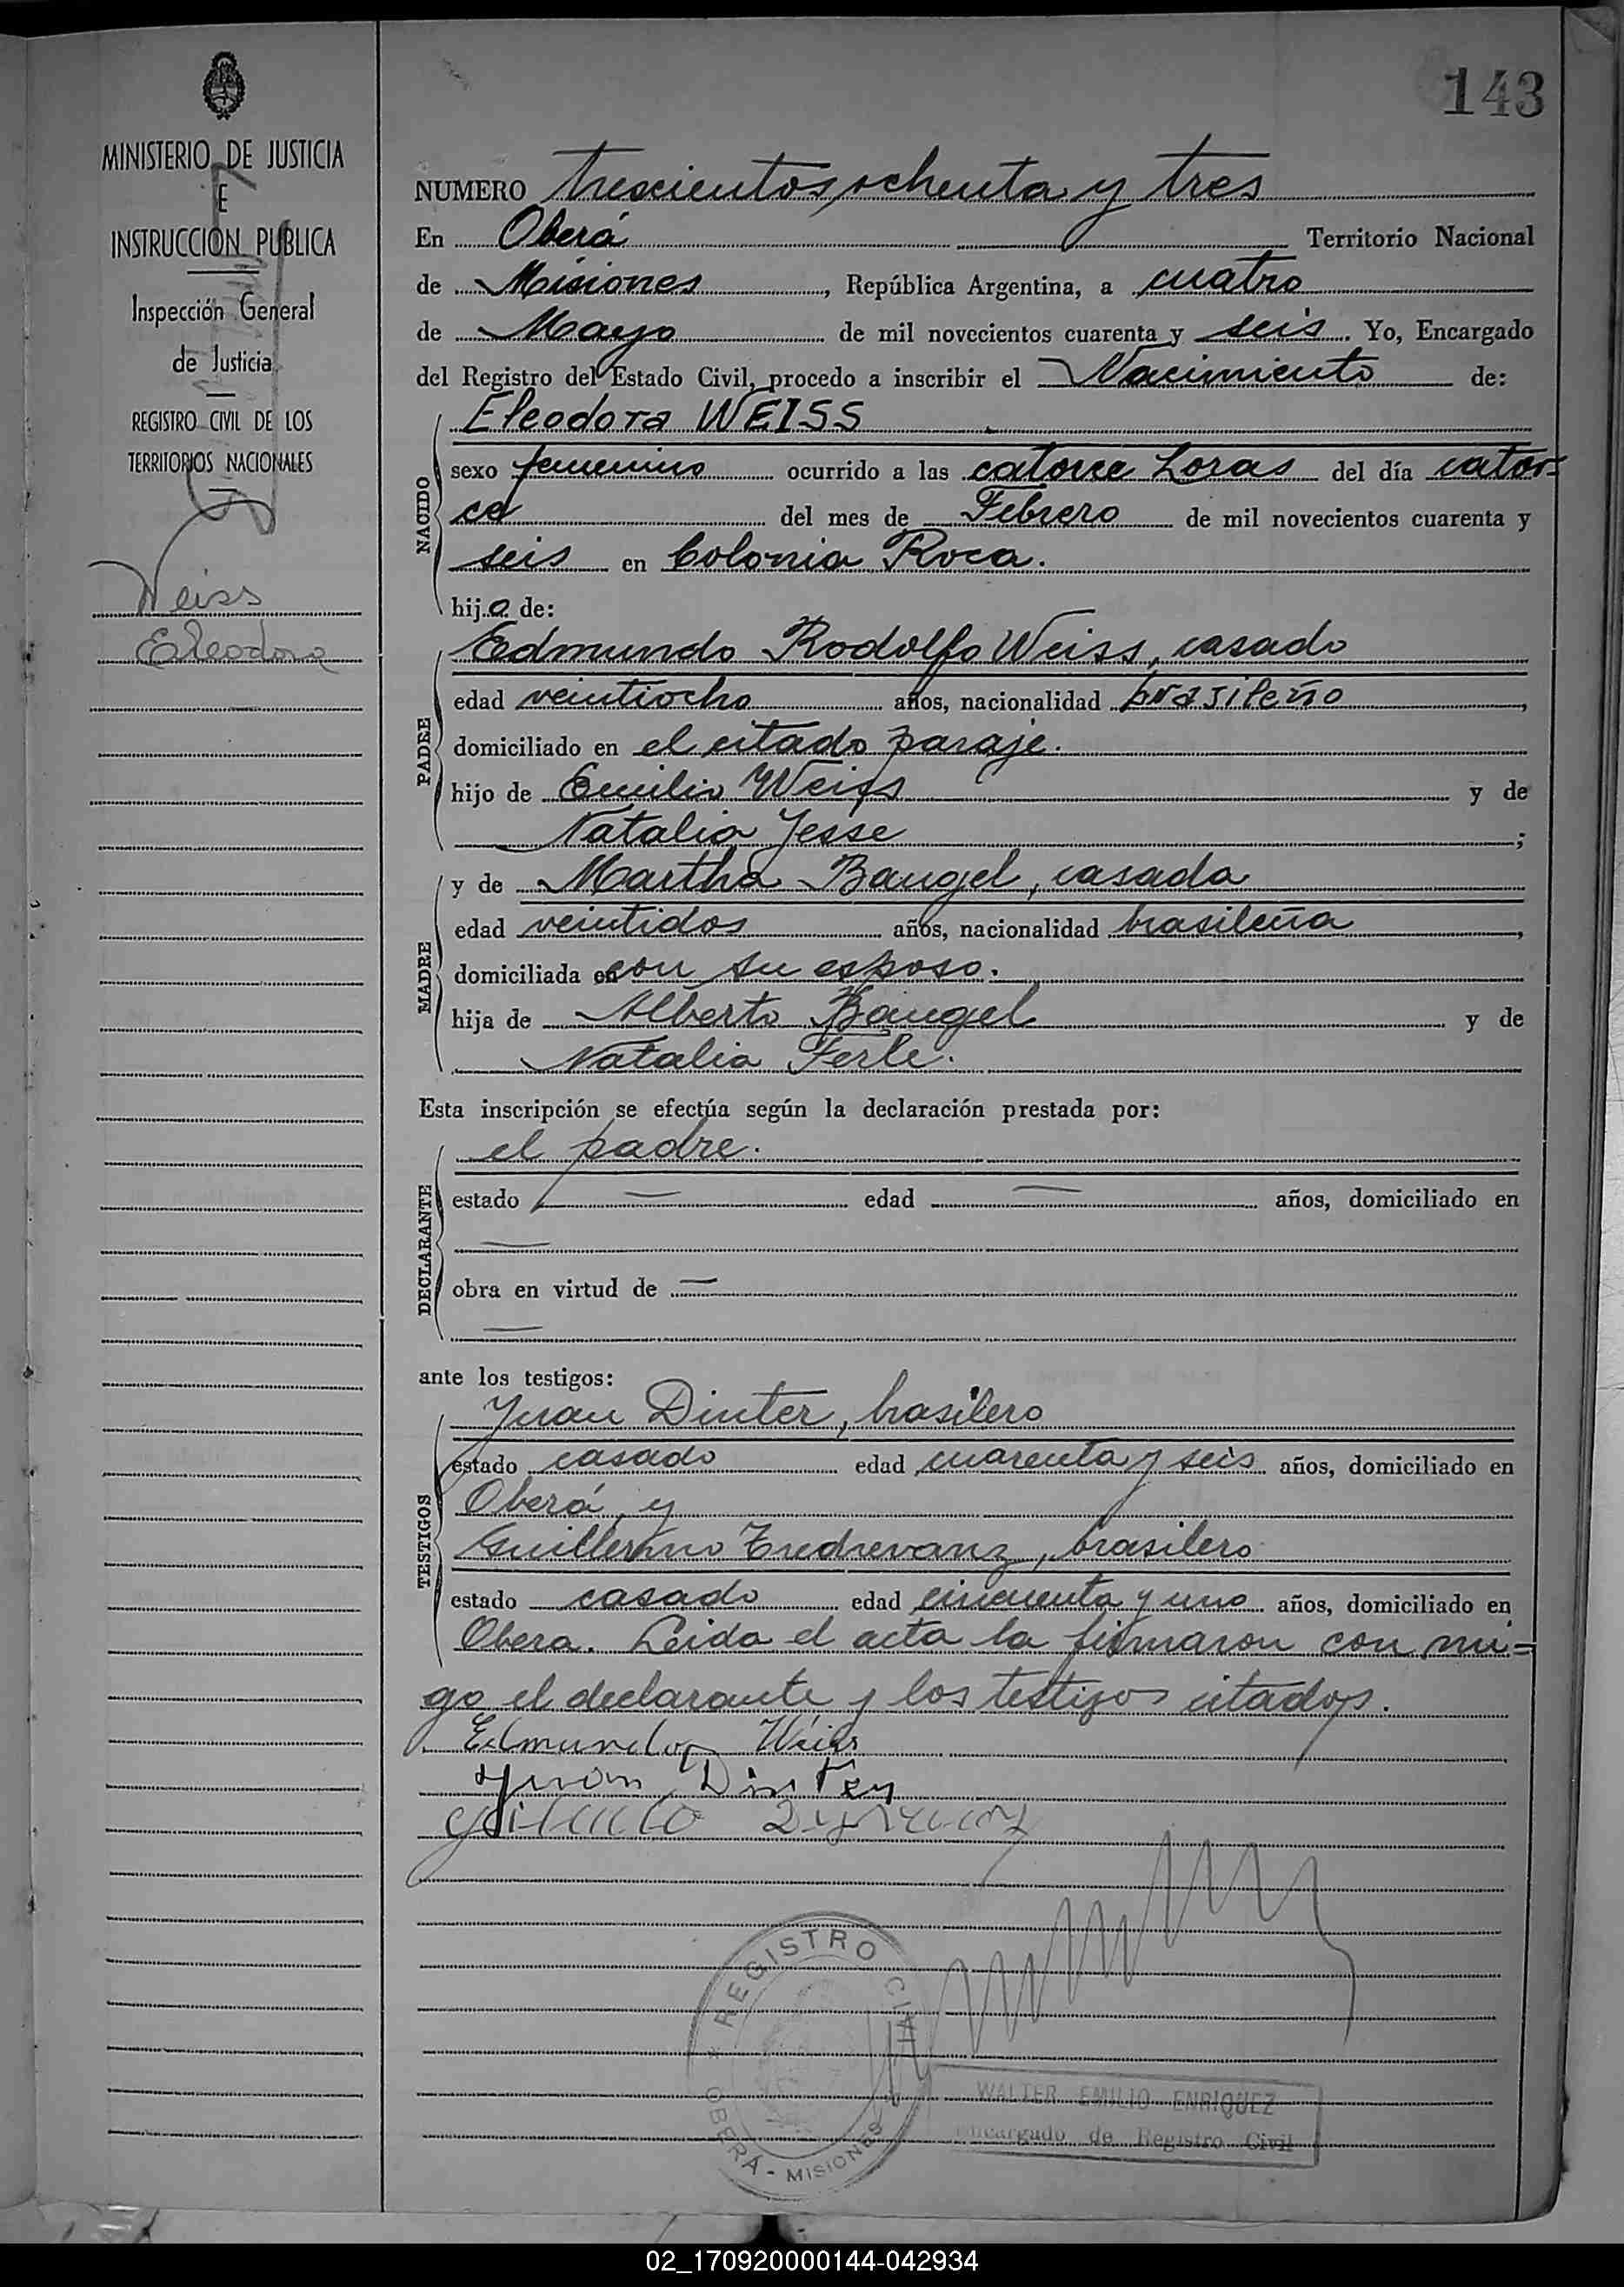 143
MINISTERIO DE JUSTICIA
E
INSTRUCCIÓN PUBLICA
Inspección General
de Justicia
REGISTRO CIVIL DE LOS
TERRITORIOS NACIONALES
Weiss
Eleodora
NUMERO trescientos ochenta y tres
En Oberá Territorio Nacional
de Misiones, República Argentina, a cuatro
de Mayo de mil novecientos cuarenta y seis. Yo, Encargado
del Registro del Estado Civil, procedo a inscribir el Nacimiento de:
NACIDO
Eleodora WEISS
sexo femenino ocurrido a las catorce horas del día cator=
ce del mes de Febrero de mil novecientos cuarenta y
seis en Colonia Roca.
hija de:
PADRE
Edmundo Rodolfo Weiss, casado
edad veintiocho años, nacionalidad brasileño,
domiciliado en el citado paraje.
hijo de Emilio Weiss y de
Natalia Jesse;
MADRE
y de Martha Baugel, casada
edad veintidos años, nacionalidad brasileña,
domiciliada en con su esposo.
hija de Alberto Baugel y de
Natalia Ferle.
Esta inscripción se efectúa según la declaración prestada por:
DECLARANTE
el padre.
estado — edad — años, domiciliado en
—
obra en virtud de —
—
ante los testigos:
TESTIGOS
Juan Dinter, brasilero
estado casado edad cuarenta y seis años, domiciliado en
Oberá, y
Guillermo, brasilero
estado casado edad cincuenta y uno años, domiciliado en
Obera. Leida el acta la firmaron con mi=
go el declarante y los testigos citados.
Edmundo Weiss
Juan Dinter
REGISTRO CIVIL
OBERÁ - MISIONES
WALTER EMILIO ENRIQUEZ
Encargado de Registro Civil
02_170920000144-042934